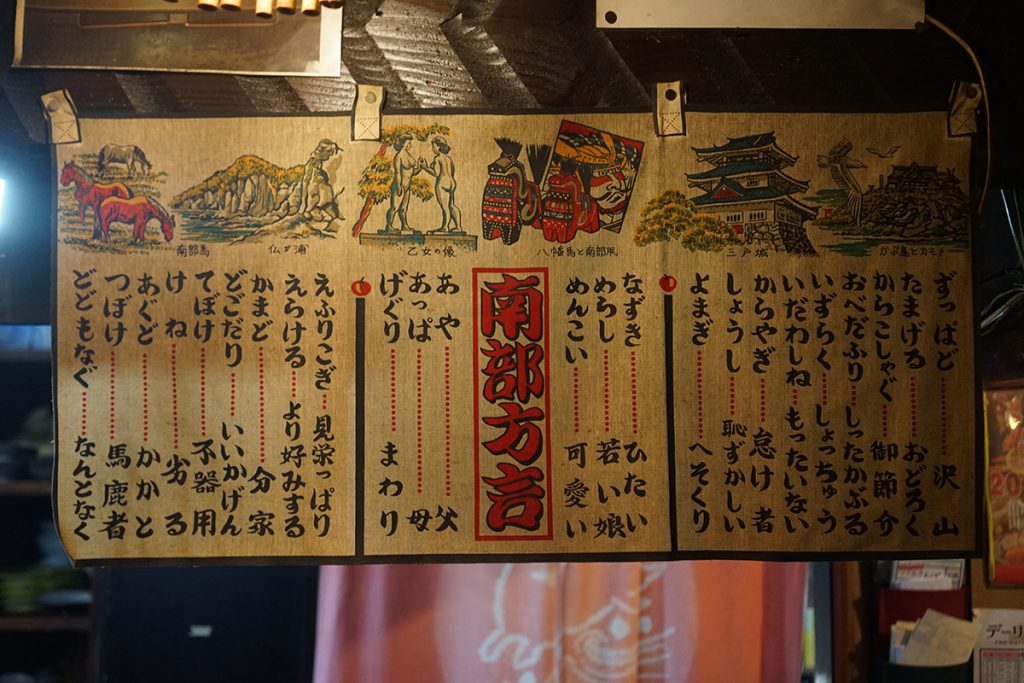 南部馬
仏ヶ浦
乙女の像
八幡馬と南部凧
三戸城
かぶ島とカモメ
ずっぱど……沢山
たまげる……おどろく
からこしゃぐ……御節介
おべだふり……しったかぶる
いずらく……しょっちゅう
いだわしね……もったいない
からやぎ……怠け者
しょうし……恥ずかしい
よまぎ……へそくり
なずき……ひたい
めらし……若い娘
めんこい……可愛い
南部方言
あや……父
あっぱ……母
げぐり……まわり
えふりこぎ……見栄っぱり
えらける……より好みする
かまど……分家
どごだり……いいかげん
てぼけ……不器用
けね……劣る
あぐど……かかと
つぼけ……馬鹿者
どどもなぐ……なんとなく
20
デーリ